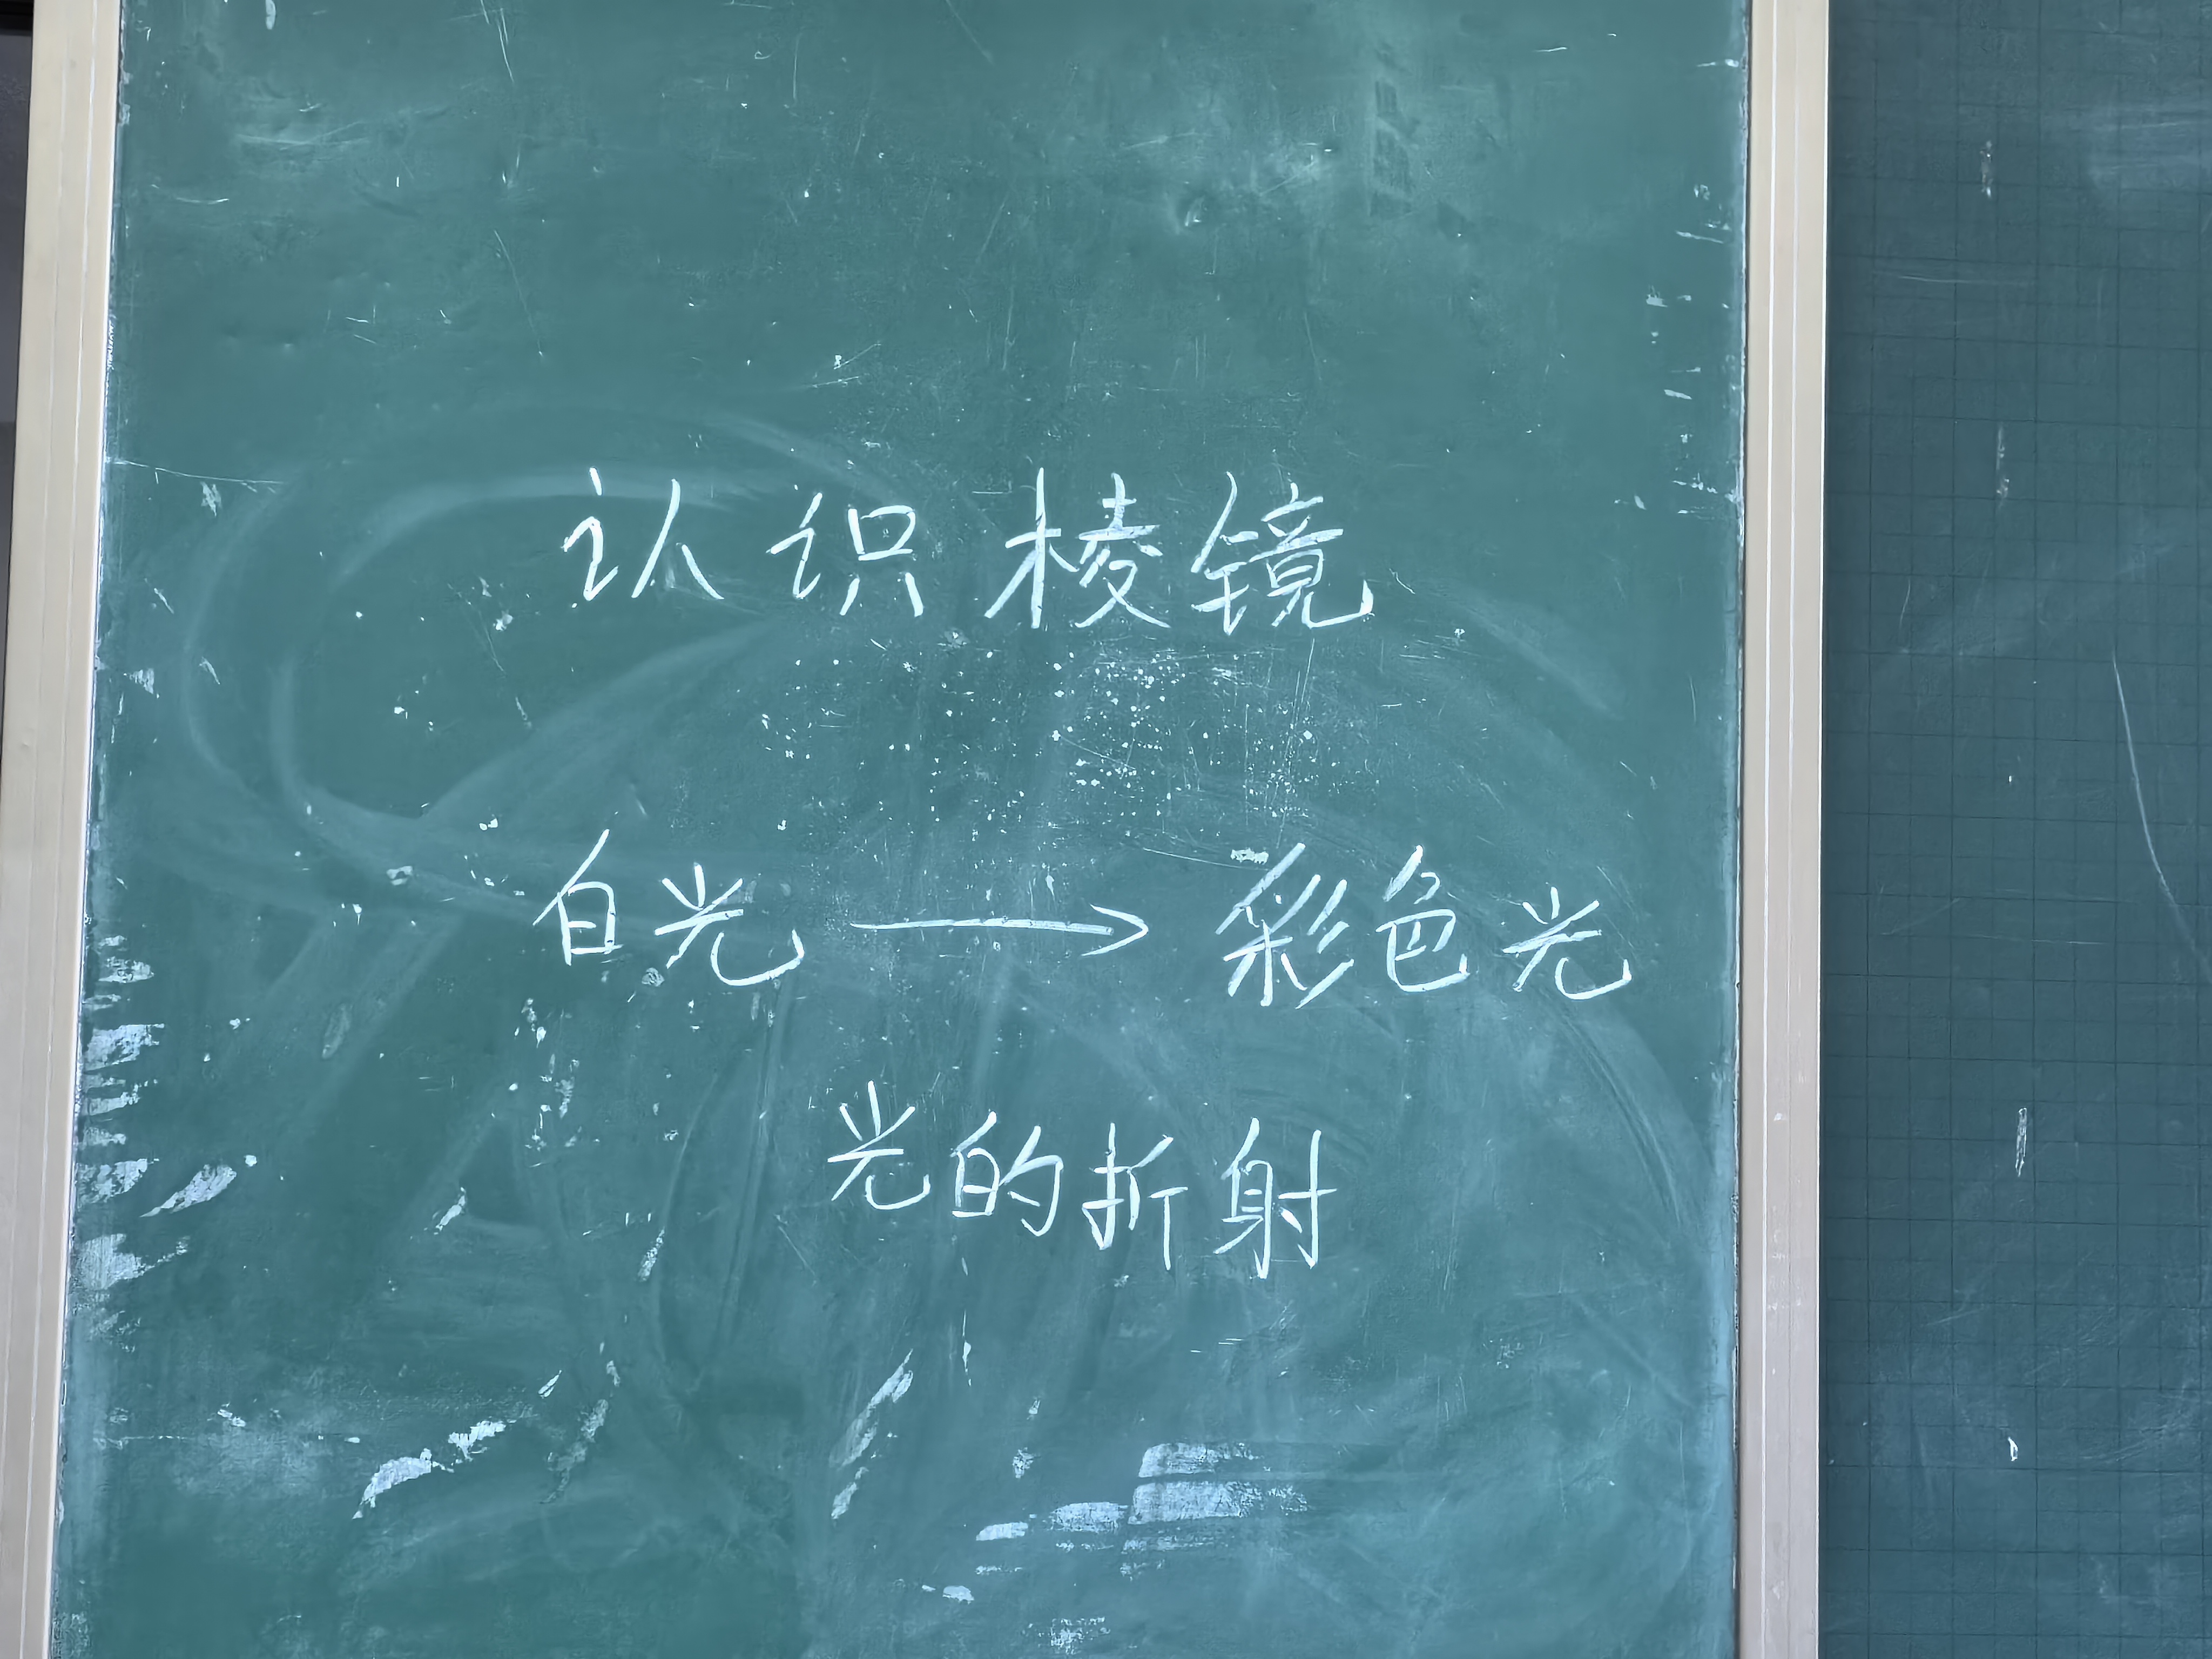 认识棱镜
白光 → 彩色光
光的折射